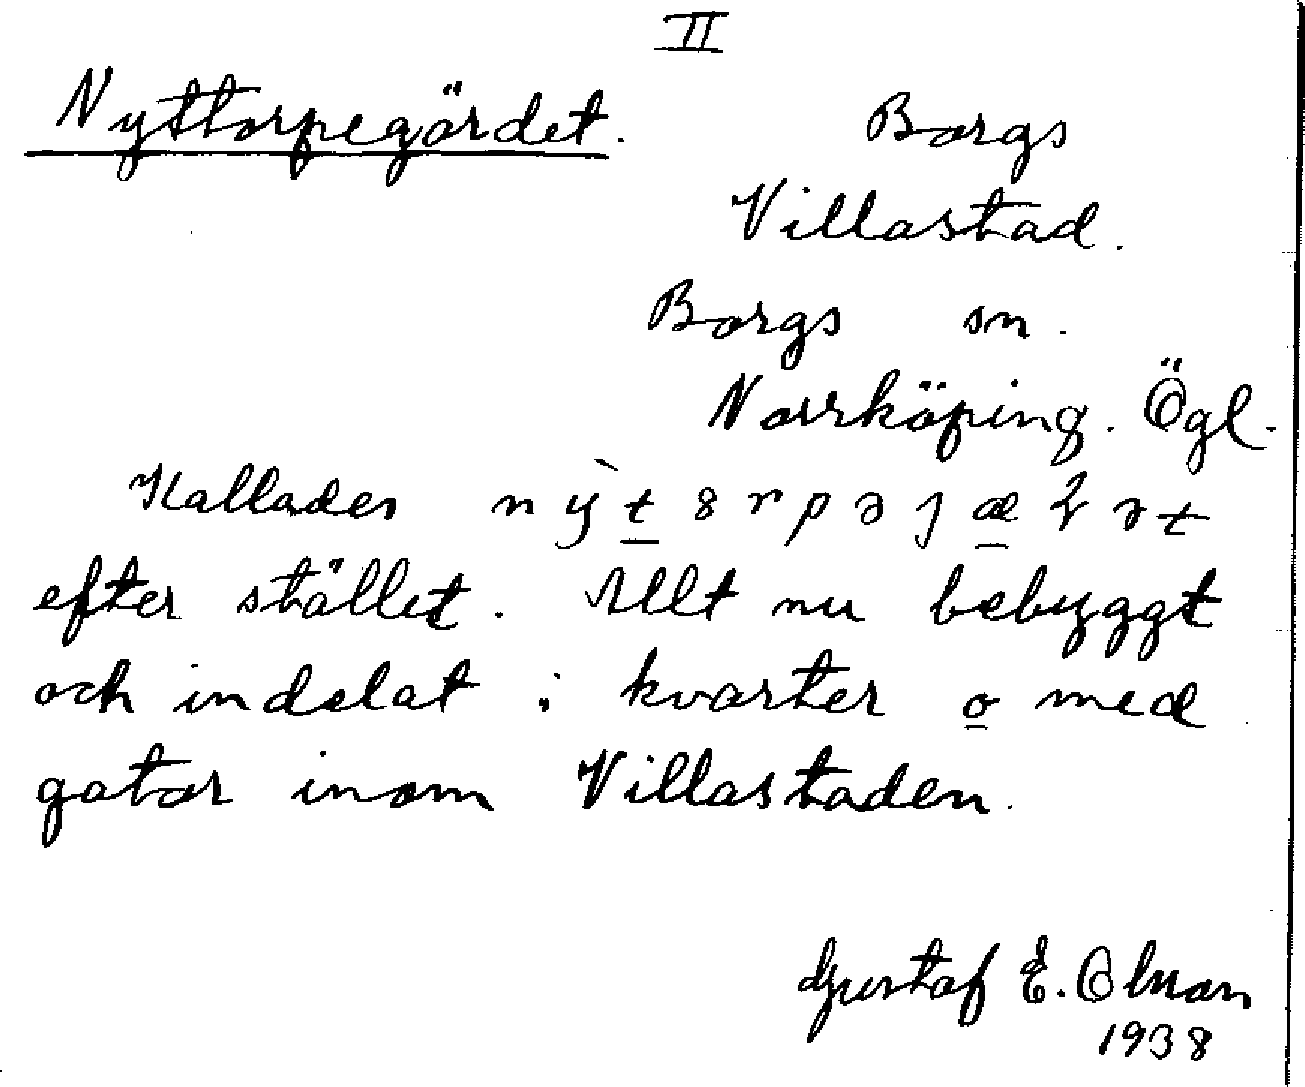 II
Nyttorpegärdet.
Borgs
Villastad.
Borgs sn.
Norrköping. Ögl.
Kallades
efter stället. Allt nu bebyggt
och indelat i kvarter o med
gator inom Villastaden.
Gustaf E.
1938